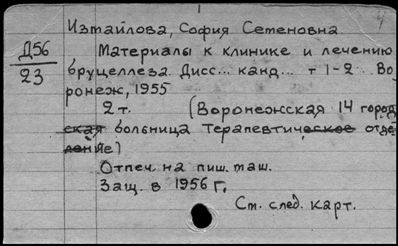 Измайлова, София Семеновна
Д56
23
Материалы к клинике и лечению
бруцеллеза. Дисс... канд... т 1-2 Во-
ронеж, 1955
2 т. (Воронежская 14 город
ская больница Терапевтическое отде
ление)
Отпеч. на пиш. маш.
Защ. в 1956 г.
См. след. карт.